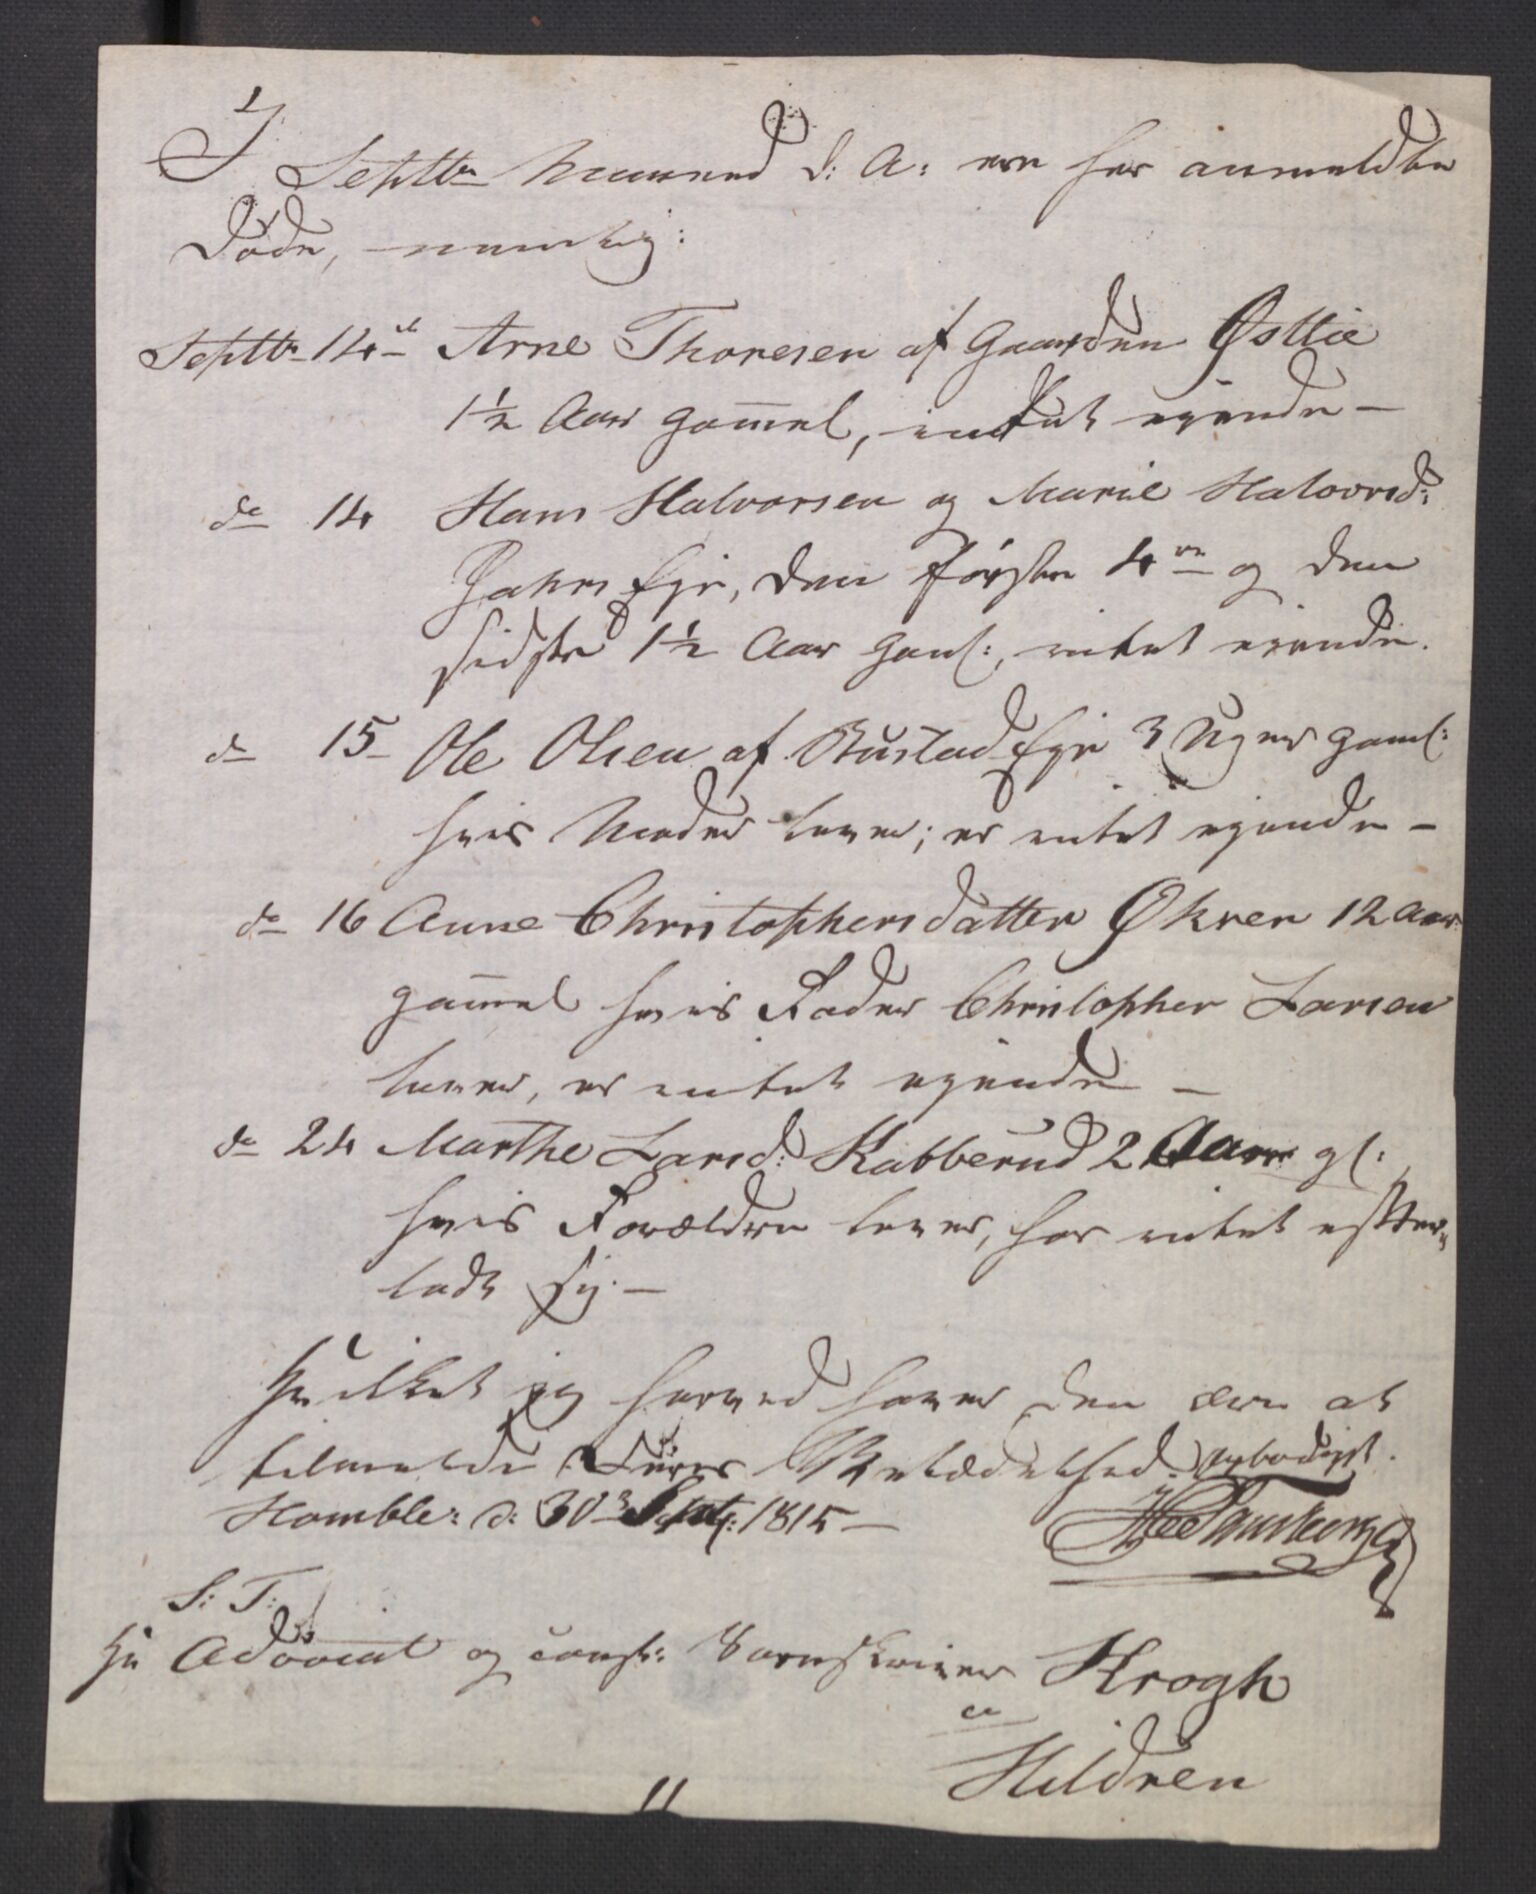 I Septbr Maaned d: A: ere her anmeldte
Døde, nemlig:
Septbr 14de Arne Thoresen af Gaarden Østlie
1½ Aar gammel, intet ejende –
do 14 Hans Halvorsen og Marie Halvorsd:
Eje, den første 4re og den
sidste 1½ Aar gaml:, intet ejende.
do 15 Ole Olsen af Bustad Eje 3 Uger gaml:
hvis Moder lever; er intet ejende –
do 16 Anne Christophersdatter Økren 12 Aar
gammel hvis Fader Christopher Larsen
lever, er intet ejende –
do 24 Marthe Larsd: Kabberud 2 Aar gl:
hvis Forældre lever, har intet efter
ladt sig. –
Hvilket jeg herved haver den ære at
tilmelde Deres Velædelhed. ærbødigst.
Homble: d: 30 Sept: 1815 –
S: T:
Hr Advocat og const: Sorenskriver Krogh
a
Hildren